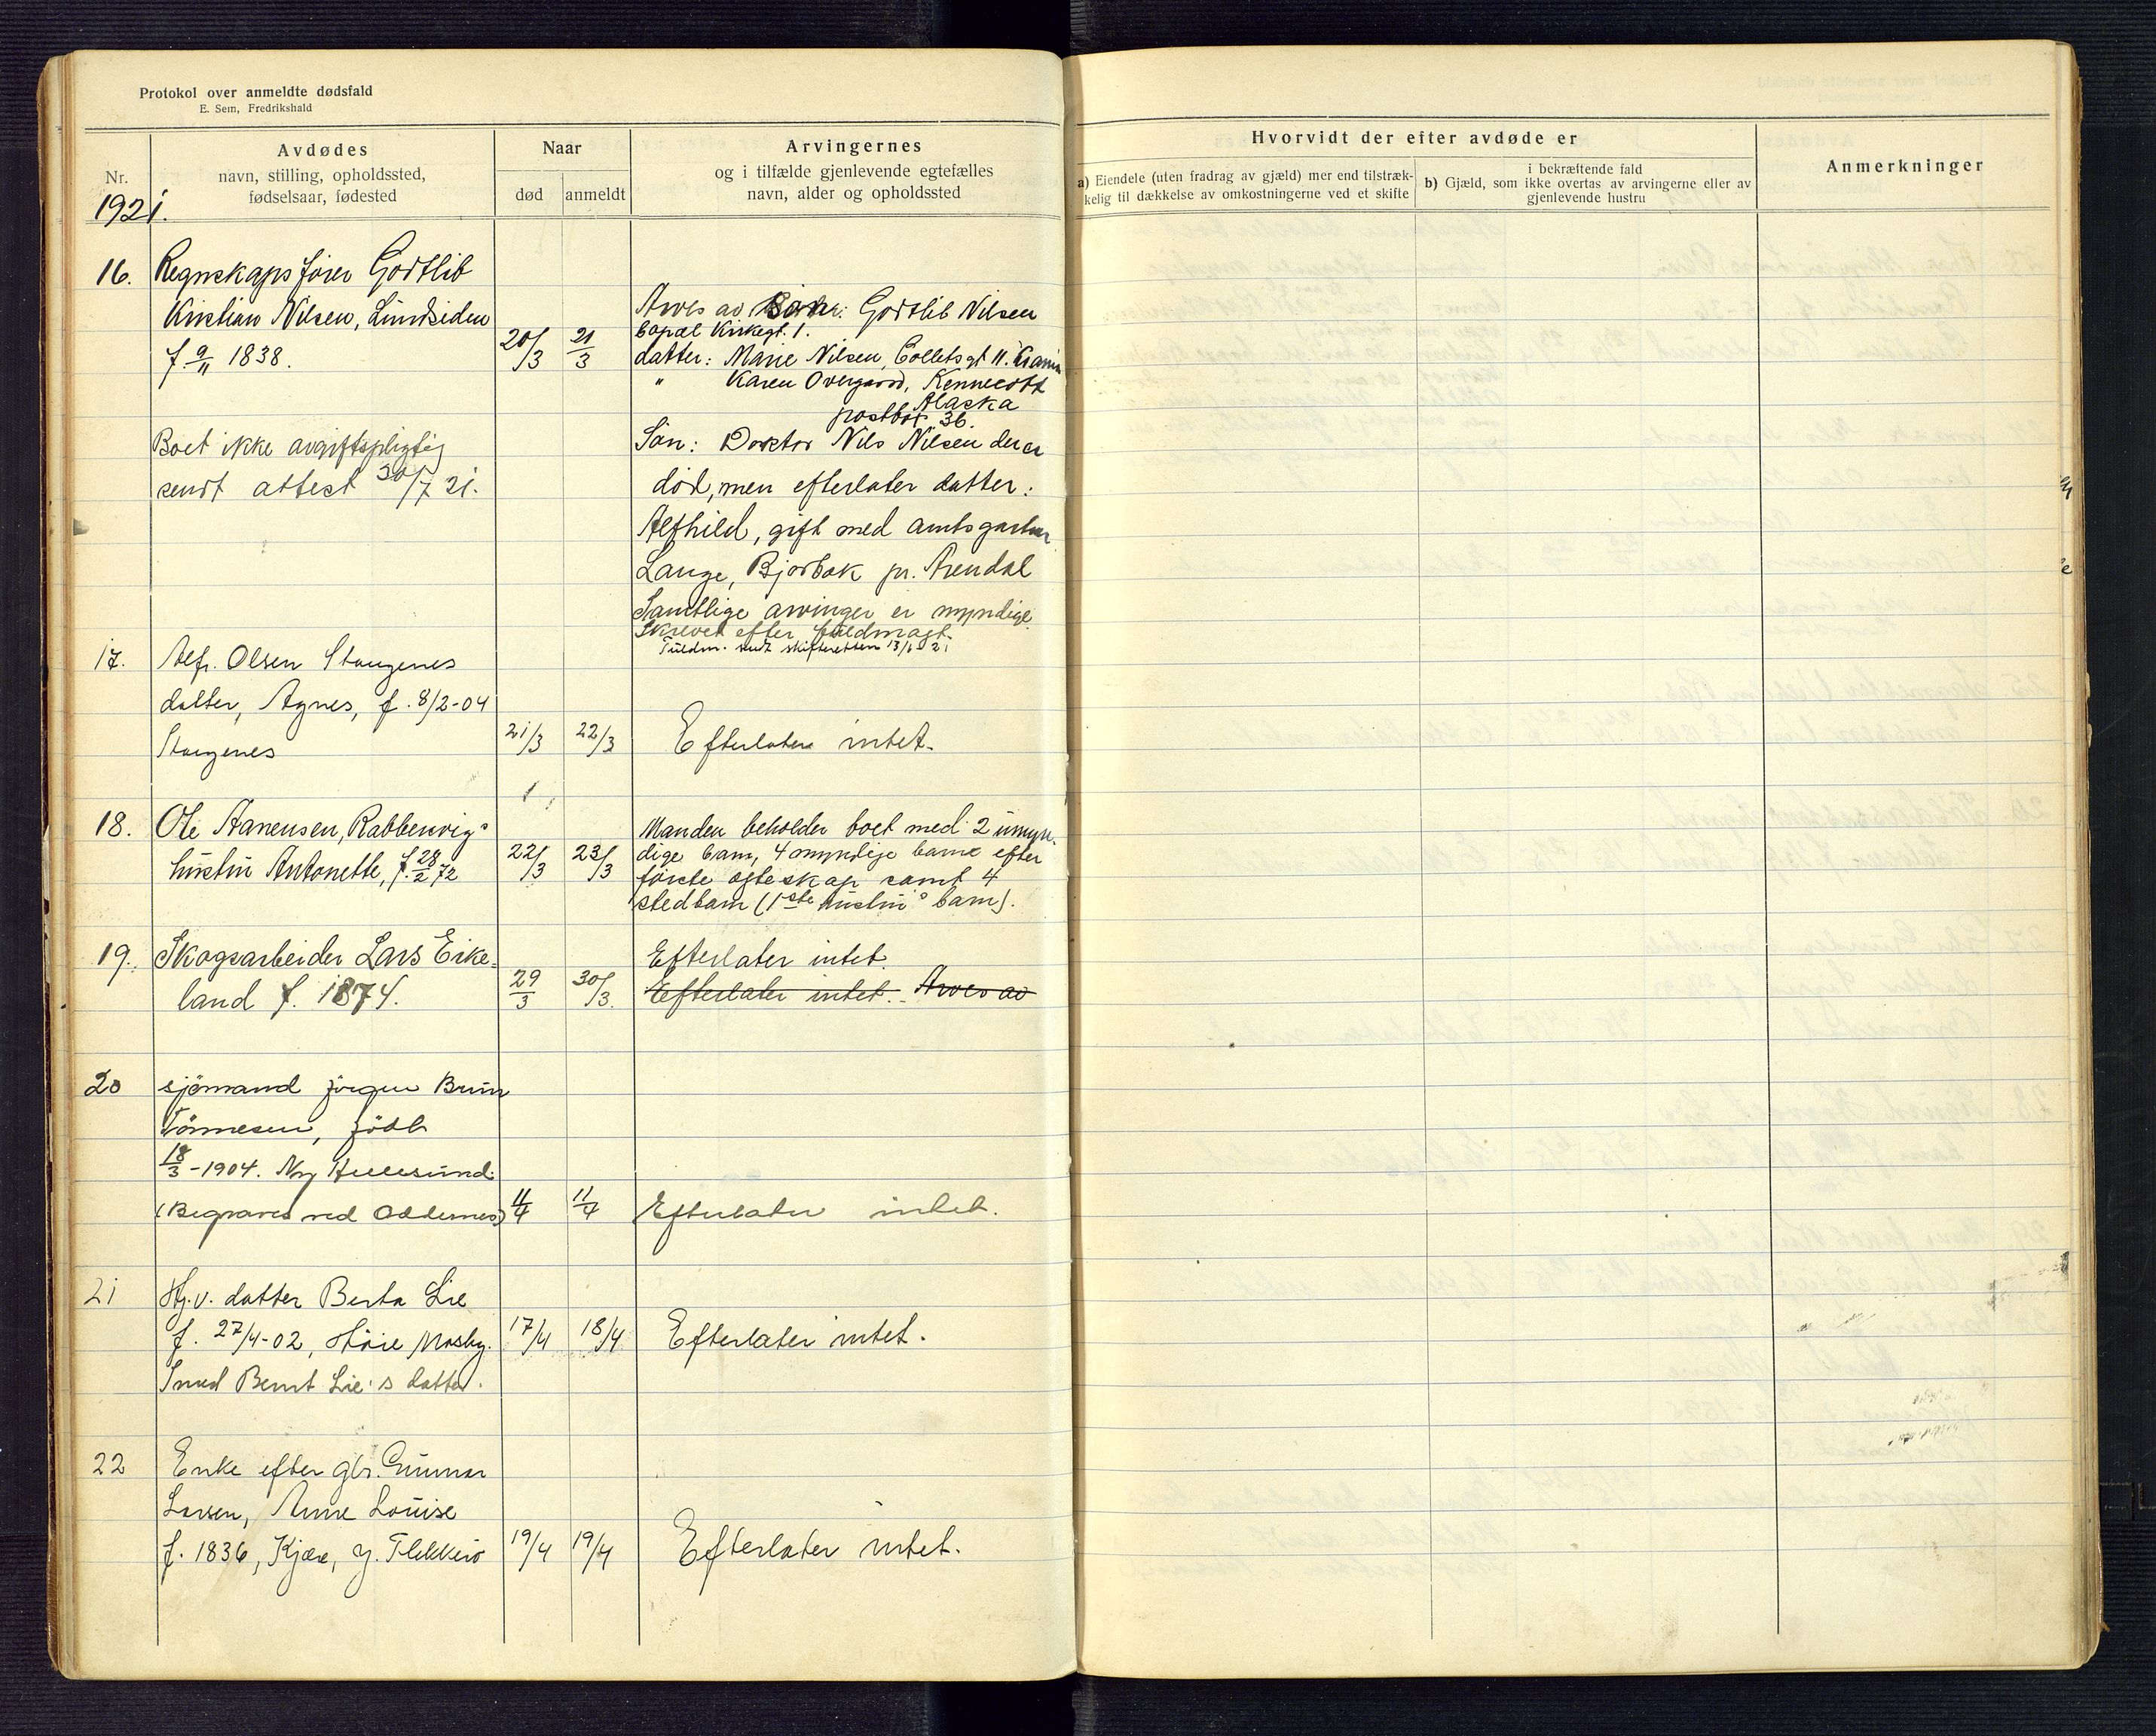 Protokol over anmeldte dødsfald
E. Sem, Fredrikshald
Nr.
1921.
Avdødes
navn, stilling, opholdssted,
fødselsaar, fødested
Naar
død
anmeldt
Arvingernes
og i tilfælde gjenlevende egtefælles
navn, alder og opholdssted
Hvorvidt der efter avdøde er
a) Eiendele (uten fradrag av gjæld) mer end tilstræk-
kelig til dækkelse av omkostningerne ved et skifte
i bekræftende fald
b) Gjæld, som ikke overtas av arvingerne eller av
gjenlevende hustru
Anmerkninger
16. Regnskapsfører Gottlib
Kristian Nilsen, Lundsiden
f. 9/11 1838.
20/3 21/3
Boet ikke avgiftspligtig
sendt attest 30/7 21.
Arves av Sön: Gottlib Nilsen
bopæl Kirkegt. 1.
datter: Marie Nilsen, Colletsgt 11.
" Karen Overgaard, Kennecott
Alaska
postbox 36.
Sön: Doktor Nils Nilsen der er
död, men efterlater datter:
Alfhild, gift med amtsgartner
Lange, Bjorbæk pr. Arendal
Samtlige arvinger er myndige
Skrevet efter fuldmagt.
Fuldm. sendt skifteretten 13/6 21
17. Alfr. Olsen Stangenes
datter, Agnes, f. 8/2-04
Stangenes
21/3 22/3 Efterlater intet.
18. Ole Aanensen, Rabbersvigs
hustru Antonette, f. 28/2 72
22/3 23/3
Manden beholder boet med 2 umyn-
dige barn, 4 myndige barn efter
förste egteskap samt 4
stedbarn (1ste hustru's barn).
19. Skogsarbeider Lars Eike-
land f. 1874.
29/3 30/3.
Efterlater intet.
Efterlater intet. Arves av
20 sjömand Jörgen Brun
Tönnesen, född
18/3-1904. Ny Hellesund.
(Begraves ved Oddernes)
11/4 11/4 Efterlater intet.
21 Hj.v. datter Berta Lie
f. 27/4-02, Höie Mosby.
Smed Bernt Lie's datter.
17/4 18/4 Efterlater intet.
22 Enke efter gbr. Gunnar
Larsen, Anne Louise
f. 1836, Kjære, y. Flekkerö
19/4 19/4 Efterlater intet.